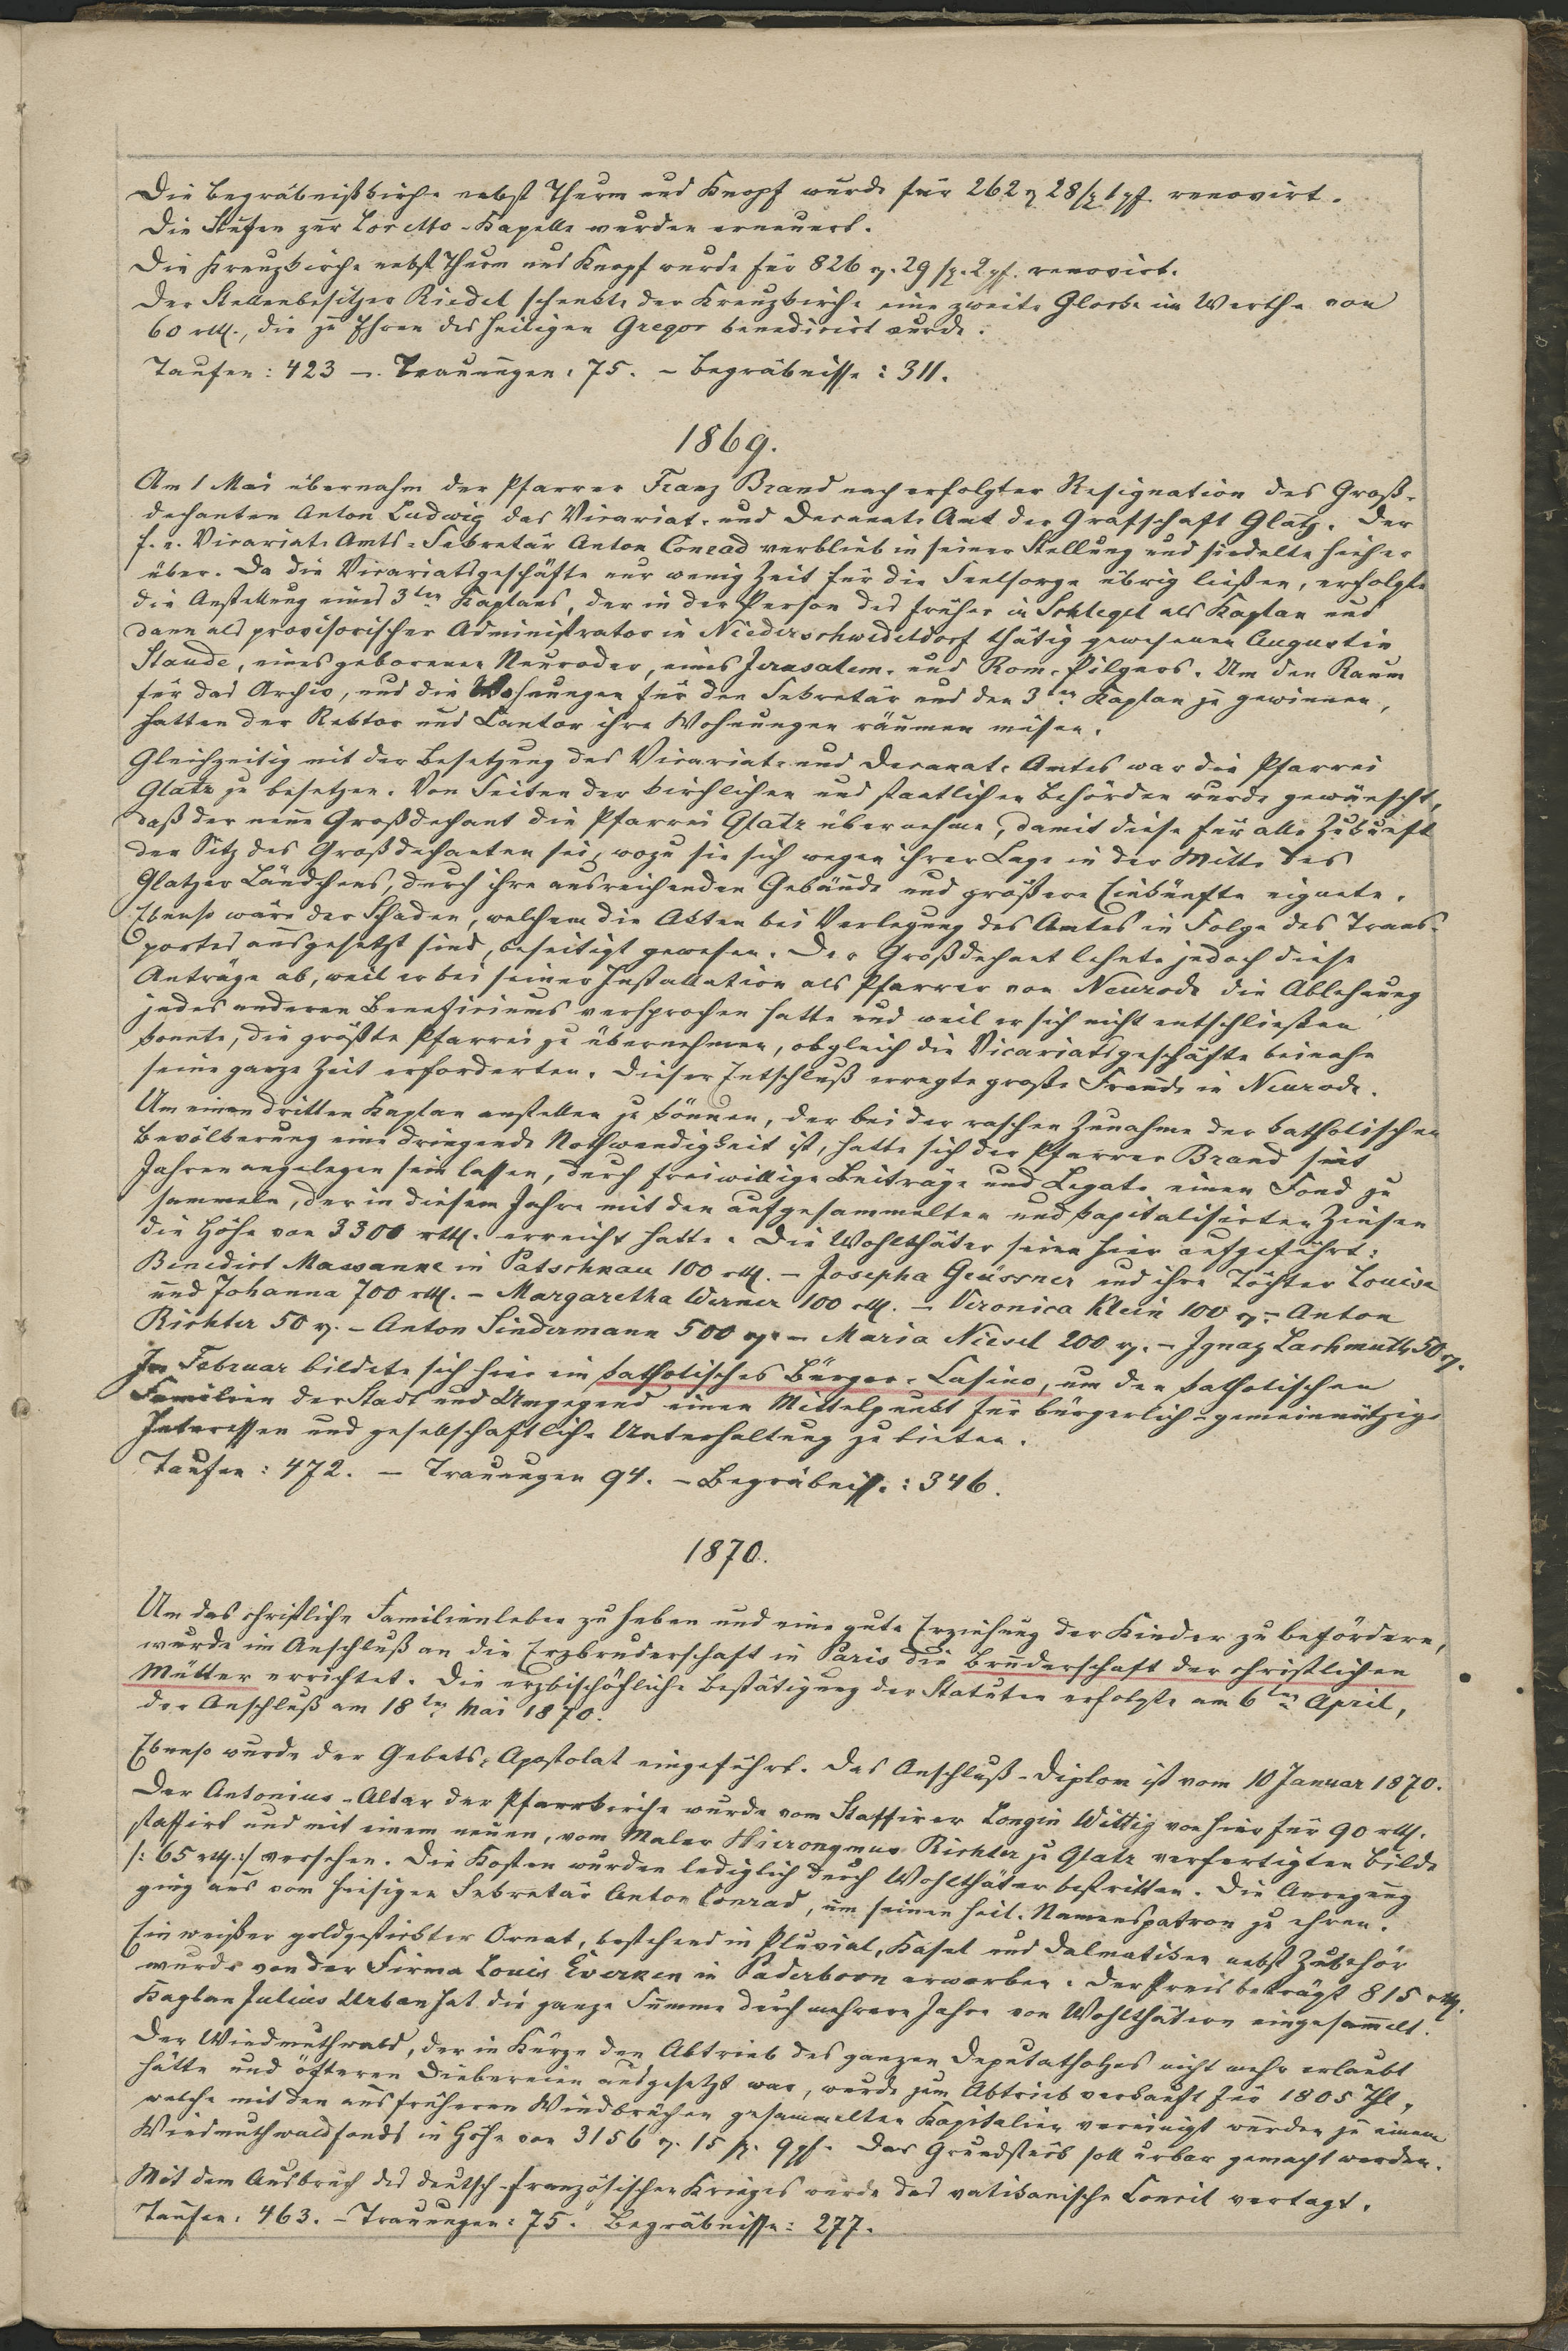 Die Begräbnißkirche nebst Thurm und Knopf wurde für 262 rt 28 sg 1 pf. renovirt.
Die Stufen zur Loretto-Kapelle wurden erneuert.
Die Kreuzkirche nebst Thurm und Knopf wurde für 826 rt. 29 sg. 2 pf. renovirt.
Der Stellenbesitzer Riedel schenkte der Kreuzkirche eine zweite Glocke im Werthe von
60 rtl., die zu Ehren des heiligen Gregor benedicirt wurde.
Taufen: 423 –. Trauungen: 75. – Begräbnisse: 311.
1869.
Am 1 Mai übernahm der Pfarrer Franz Brand nach erfolgter Resignation des Groß-
dechanten Anton Ludwig das Vicariat- und Decanats Amt der Grafschaft Glatz. Der
f. e. Vicariat-Amts-Sekretär Anton Conrad verblieb in seiner Stellung und siedelte hieher
über. Da die Vicariatsgeschäfte nur wenig Zeit für die Seelsorge übrig ließen, erfolgte
die Anstellung eines 3ten Kaplans, der in der Person des früher in Schlegel als Kaplan und
dann als provisorischer Administrator in Niederschwedeldorf thätig gewesenen Augustin
Staude, eines geborenen Neuroder, eines Jerusalem- und Rom-Pilgers. Um den Raum
für das Archiv, und die Wohnungen für den Sekretär und den 3ten Kaplan zu gewinnen,
hatten der Rektor und Cantor ihre Wohnungen räumen müsen.
Gleichzeitig mit der Besetzung des Vicariats- und Decanat-Amtes war die Pfarrei
Glatz zu besetzen. Von Seiten der kirchlichen und staatlichen Behörden wurde gewünscht,
daß der neue Großdechant die Pfarrei Glatz übernehme, damit diese für alle Zukunft
der Sitz des Großdechanten sei, wozu sie sich wegen ihrer Lage in der Mitte des
Glatzer Ländchens, durch ihre ausreichenden Gebäude und größere Einkünfte eignete.
Ebenso wäre der Schaden, welchem die Akten bei Verlegung des Amtes in Folge des Trans-
portes ausgesetzt sind, beseitigt gewesen. Der Großdechant lehnte jedoch diese
Anträge ab, weil er bei seiner Installation als Pfarrer von Neurode die Ablehnung
jedes anderen Beneficiums versprochen hatte und weil er sich nicht entschließen
konnte, die größte Pfarrei zu übernehmen, obgleich die Vicariatsgeschäfte beinahe
seine ganze Zeit erforderten. Dieser Entschluß erregte große Freude in Neurode.
Um einen dritten Kaplan anstellen zu können, der bei der raschen Zunahme der katholischen
Bevölkerung eine dringende Nothwendigkeit ist, hatte sich der Pfarrer Brand seit
Jahren angelegen sein lassen, durch freiwillige Beiträge und Legate einen Fond zu
sammeln, der in diesem Jahre mit den aufgesammelten und kapitalisirten Zinsen
die Höhe von 3300 rtl. erreicht hatte. Die Wohlthäter seien hier aufgeführt:
Benedict Massanne in Patschkau 100 rtl. – Josepha Grüssner und ihre Töchter Louise
und Johanna 700 rtl. – Margaretha Werner 100 rtl. – Veronica Klein 100 rt – Anton
Richter 50 rt. – Anton Sindermann 500 rt. – Maria Niesel 200 rt. – Ignaz Lachmuth 50 rt.
Im Februar bildete sich hier ein katholisches Bürger-Casino, um den katholischen
Familien der Stadt und Umgegend einen Mittelpunkt für bürgerlich-gemeinnützige
Interessen und gesellschaftliche Unterhaltung zu bieten.
Taufen: 472. – Trauungen 94. – Begräbniss.: 346.
1870.
Um das christliche Familienleben zu heben und eine gute Erziehung der Kinder zu befördern,
wurde im Anschluß an die Erzbruderschaft in Paris die Bruderschaft der christlichen
Mütter errichtet. Die erzbischöfliche Bestätigung der Statuten erfolgte am 6ten April,
der Anschluß am 18ten Mai 1870.
Ebenso wurde der Gebets-Apostolat eingeführt. Das Anschluß-Diplom ist vom 10 Januar 1870.
Der Antonius-Altar der Pfarrkirche wurde vom Staffirer Longin Wittig von hier für 90 rtl.
staffirt und mit einem neuen, vom Maler Hieronymus Richter zu Glatz verfertigten Bilde
/: 65 rtl. :/ versehen. Die Kosten wurden lediglich durch Wohlthäter bestritten. Die Anregung
ging aus vom hiesigen Sekretär Anton Conrad, um seinen heil. Namenspatron zu ehren.
Ein weißer goldgestickter Ornat, bestehend in Pluvial, Kasel und Dalmatiken nebst Zubehör
wurde von der Firma Louis Everken in Paderborn erworben. Der Preis beträgt 815 rtl.
Kaplan Julius Urban hat die ganze Summe durch mehrere Jahre von Wohlthätern eingesammelt.
Der Wiedmuthwald, der in Kürze den Abtrieb des ganzen Deputatholzes nicht mehr erlaubt
hätte und öfteren Diebereien ausgesetzt war, wurde zum Abtrieb verkauft für 1805 Thl,
welche mit den aus früheren Windbrüchen gesammelten Kapitalien vereinigt wurden zu einem
Wiedmuthwaldfonds in Höhe von 3156 rt. 15 sg. 9 pf. Das Grundstück soll urbar gemacht werden.
Mit dem Ausbruch des deutsch-französischen Krieges wurde das vatikanische Concil vertagt.
Taufen: 463. – Trauungen: 75. Begräbnisse: 277.